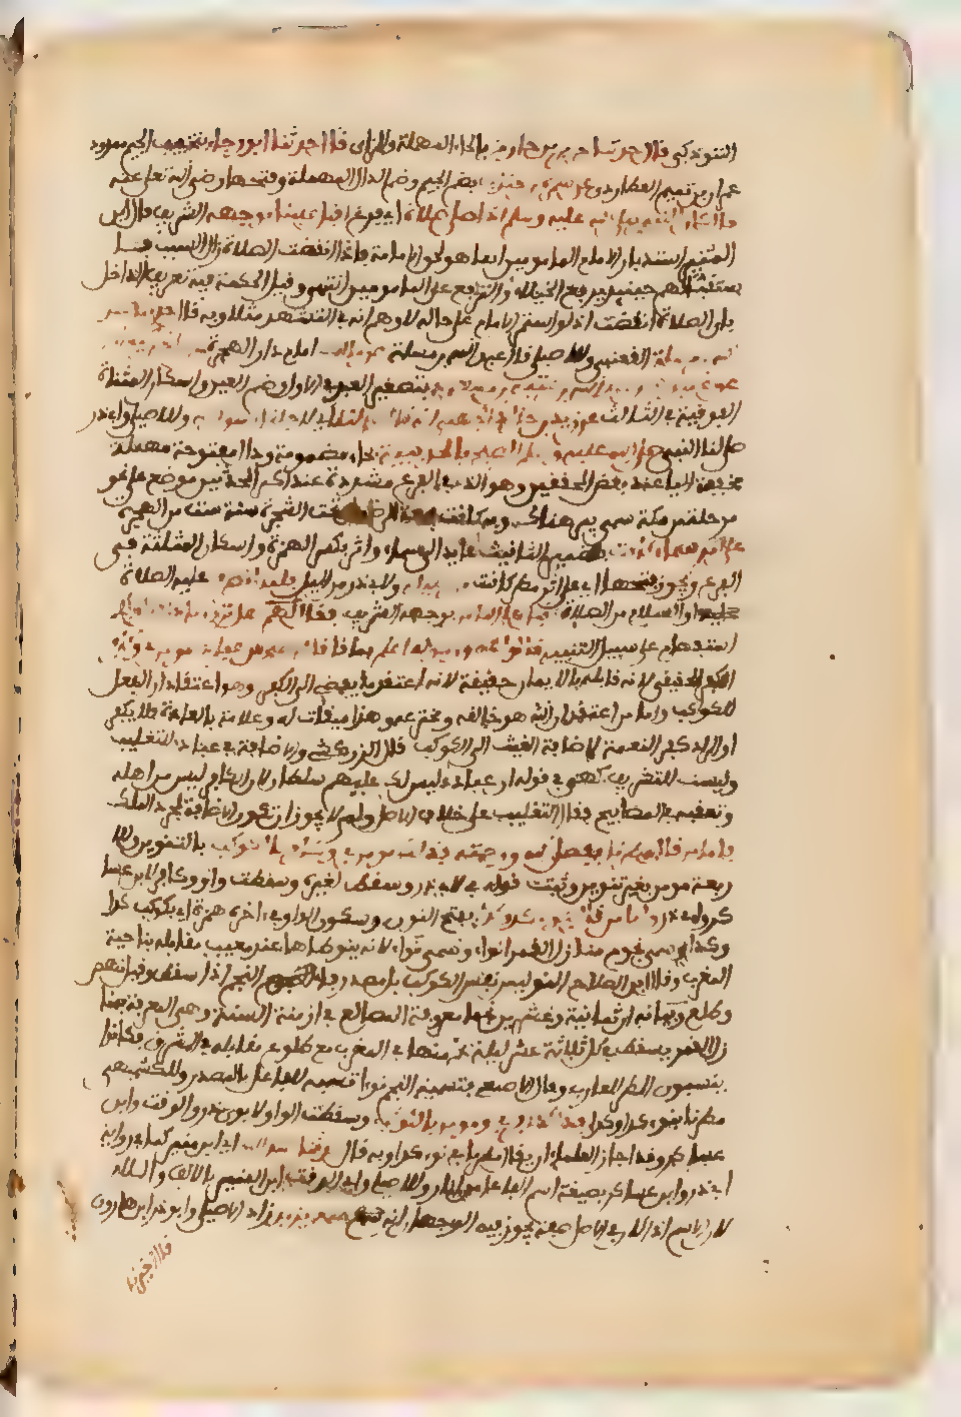 التبوذكي قال حدثنا جرير بن حازم بالحاء المهملة والزاى قال حدثنا ابو رجاء بتخفيف الجيم ممدود
عمران بن تميم العطاردي عن سمرة بن جندب بضم الجيم وضم الدال المهملة وفتحها رضي الله تعلى عنه
قال كان النبي صلى الله عليه وسلم اذا صلى صلاة اي فرغ اقبل علينا بوجهه الشريف قال ابن
المنير استدبار الامام المامومين انما هو لحق الامامة فاذا انقضت الصلاة زال السبب
حينئذ يرفع الخيلاء والترفع على المامومين انتهى وقيل الحكمة فيه تعريف الداخل
بان الصلاة انقضت اذ لو استمر الامام على حاله لاوهم انه في التشهد مثلا وبه قال
بن مسلمة القعنبي وللاصيلي قال عبد الله بن مسلمة عن مالك امام دار الهجرة
عن عبيد الله بن عبد الله بن عتبة بن مسعود بتصغير العبد في الاول وضم العين واسكان المثناة
الفوقية في الثالث عن زيد بن خالد الجهني انه قال وللاصيلي وابي ذر
صلى لنا النبي صلى الله عليه وسلم الصبح بالحديبية بحاء مضمومة ودال مفتوحة مهملة
مخففة الياء عند بعض المحققين وهو الذي في الفرع مشددة عند اكثر المحدثين موضع على نحو
مرحلة من مكة سمي ببير هناك وبه كانت تحت الشجرة سنة ست من الهجرة
على اثر سماء كانت الثانيث عايد الى سماء واثر بكسر الهمزة واسكان المثلثة في
الفرع ويجوز فتحهما اي على اثر مطر كانت ولابي ذر من الليل فلما انصرف عليه الصلاة
والسلام من الصلاة اقبل على الناس بوجهه الشريف فقال لهم هل تدرون ماذا قال ربكم
استفهام على سبيل التنبيه قالوا الله ورسوله اعلم بما قال قال اصبح من عبادي مومن بي وكافر
الكفر الحقيقي لانه قابله بالايمان حقيقة لانه اعتقد ما يفضي الى الكفر وهو اعتقاد ان الفعل
للكوكب واما من اعتقد ان الله هو خالقه ومخترعه وهذا ميقات له وعلامة بالعادة فلا يكفر
او المراد كفر النعمة لاضافة الغيث الى الكوكب قال الزركشي والاضافة في عبادي للتغليب
وليست للتشريف كهي في قوله ان عبادي ليس لك عليهم سلطان لان الكافر ليس من اهله
وتعقبه في المصابيح فقال التغليب على خلاف الاصل ولم لا يجوز ان تكون الاضافة لمجرد الملك
فاما من قال مطرنا بفضل الله ورحمته فذلك مومن بي وكافر بالكوكب بالتنوين وللا
ربعة مومن بغير تنوين وثبت قوله بي لابي ذر وسقط لغيره وسقطت واو وكافر لابن عسا
كر ولابي ذر واما من قال بنوء كذا وكذا بفتح النون وسكون الواو في اخره همزة اي بكوكب كذا
وكذا سمي نجوم منازل القمر انواء وسمي نوءا لانه ينوء طالعا عند مغيب مقابله بناحية
المغرب وقال ابن الصلاح النوء ليس نفس الكوكب بل مصدر ناء النجم اذا سقط وقيل نهض
وطلع وبيانه ان ثمانية وعشرين نجما معروفة المطالع في ازمنة السنة وهي المعروفة بمنا
زل القمر يسقط في كل ثلاثة عشر ليلة نجم منها في المغرب مع طلوع مقابله في المشرق فكانوا
ينسبون المطر للغارب وقال الاصمعي فتسمية النجم نوءا تسمية للفاعل بالمصدر وللكشميهني
مطرنا بنوء كذا وكذا فذلك كافر بي ومومن بالكوكب وسقطت الواو لابوي ذر والوقت وابن
عساكر وقد اجاز العلماء ان يقال مطرنا في نوء كذا وبه قال حدثنا عبد الله اي ابن منير كما في رواية
ابي ذر وابن عساكر بصيغة اسم الفاعل من انار وللاصيلي وابي الوقت ابن المنير بالالف واللام
لان الاسم اذا كان في الاصل صفة يجوز فيه الوجهان انه سمع يزيد زاد الاصيلي وابو ذر ابن هارون
قال اخبرنا